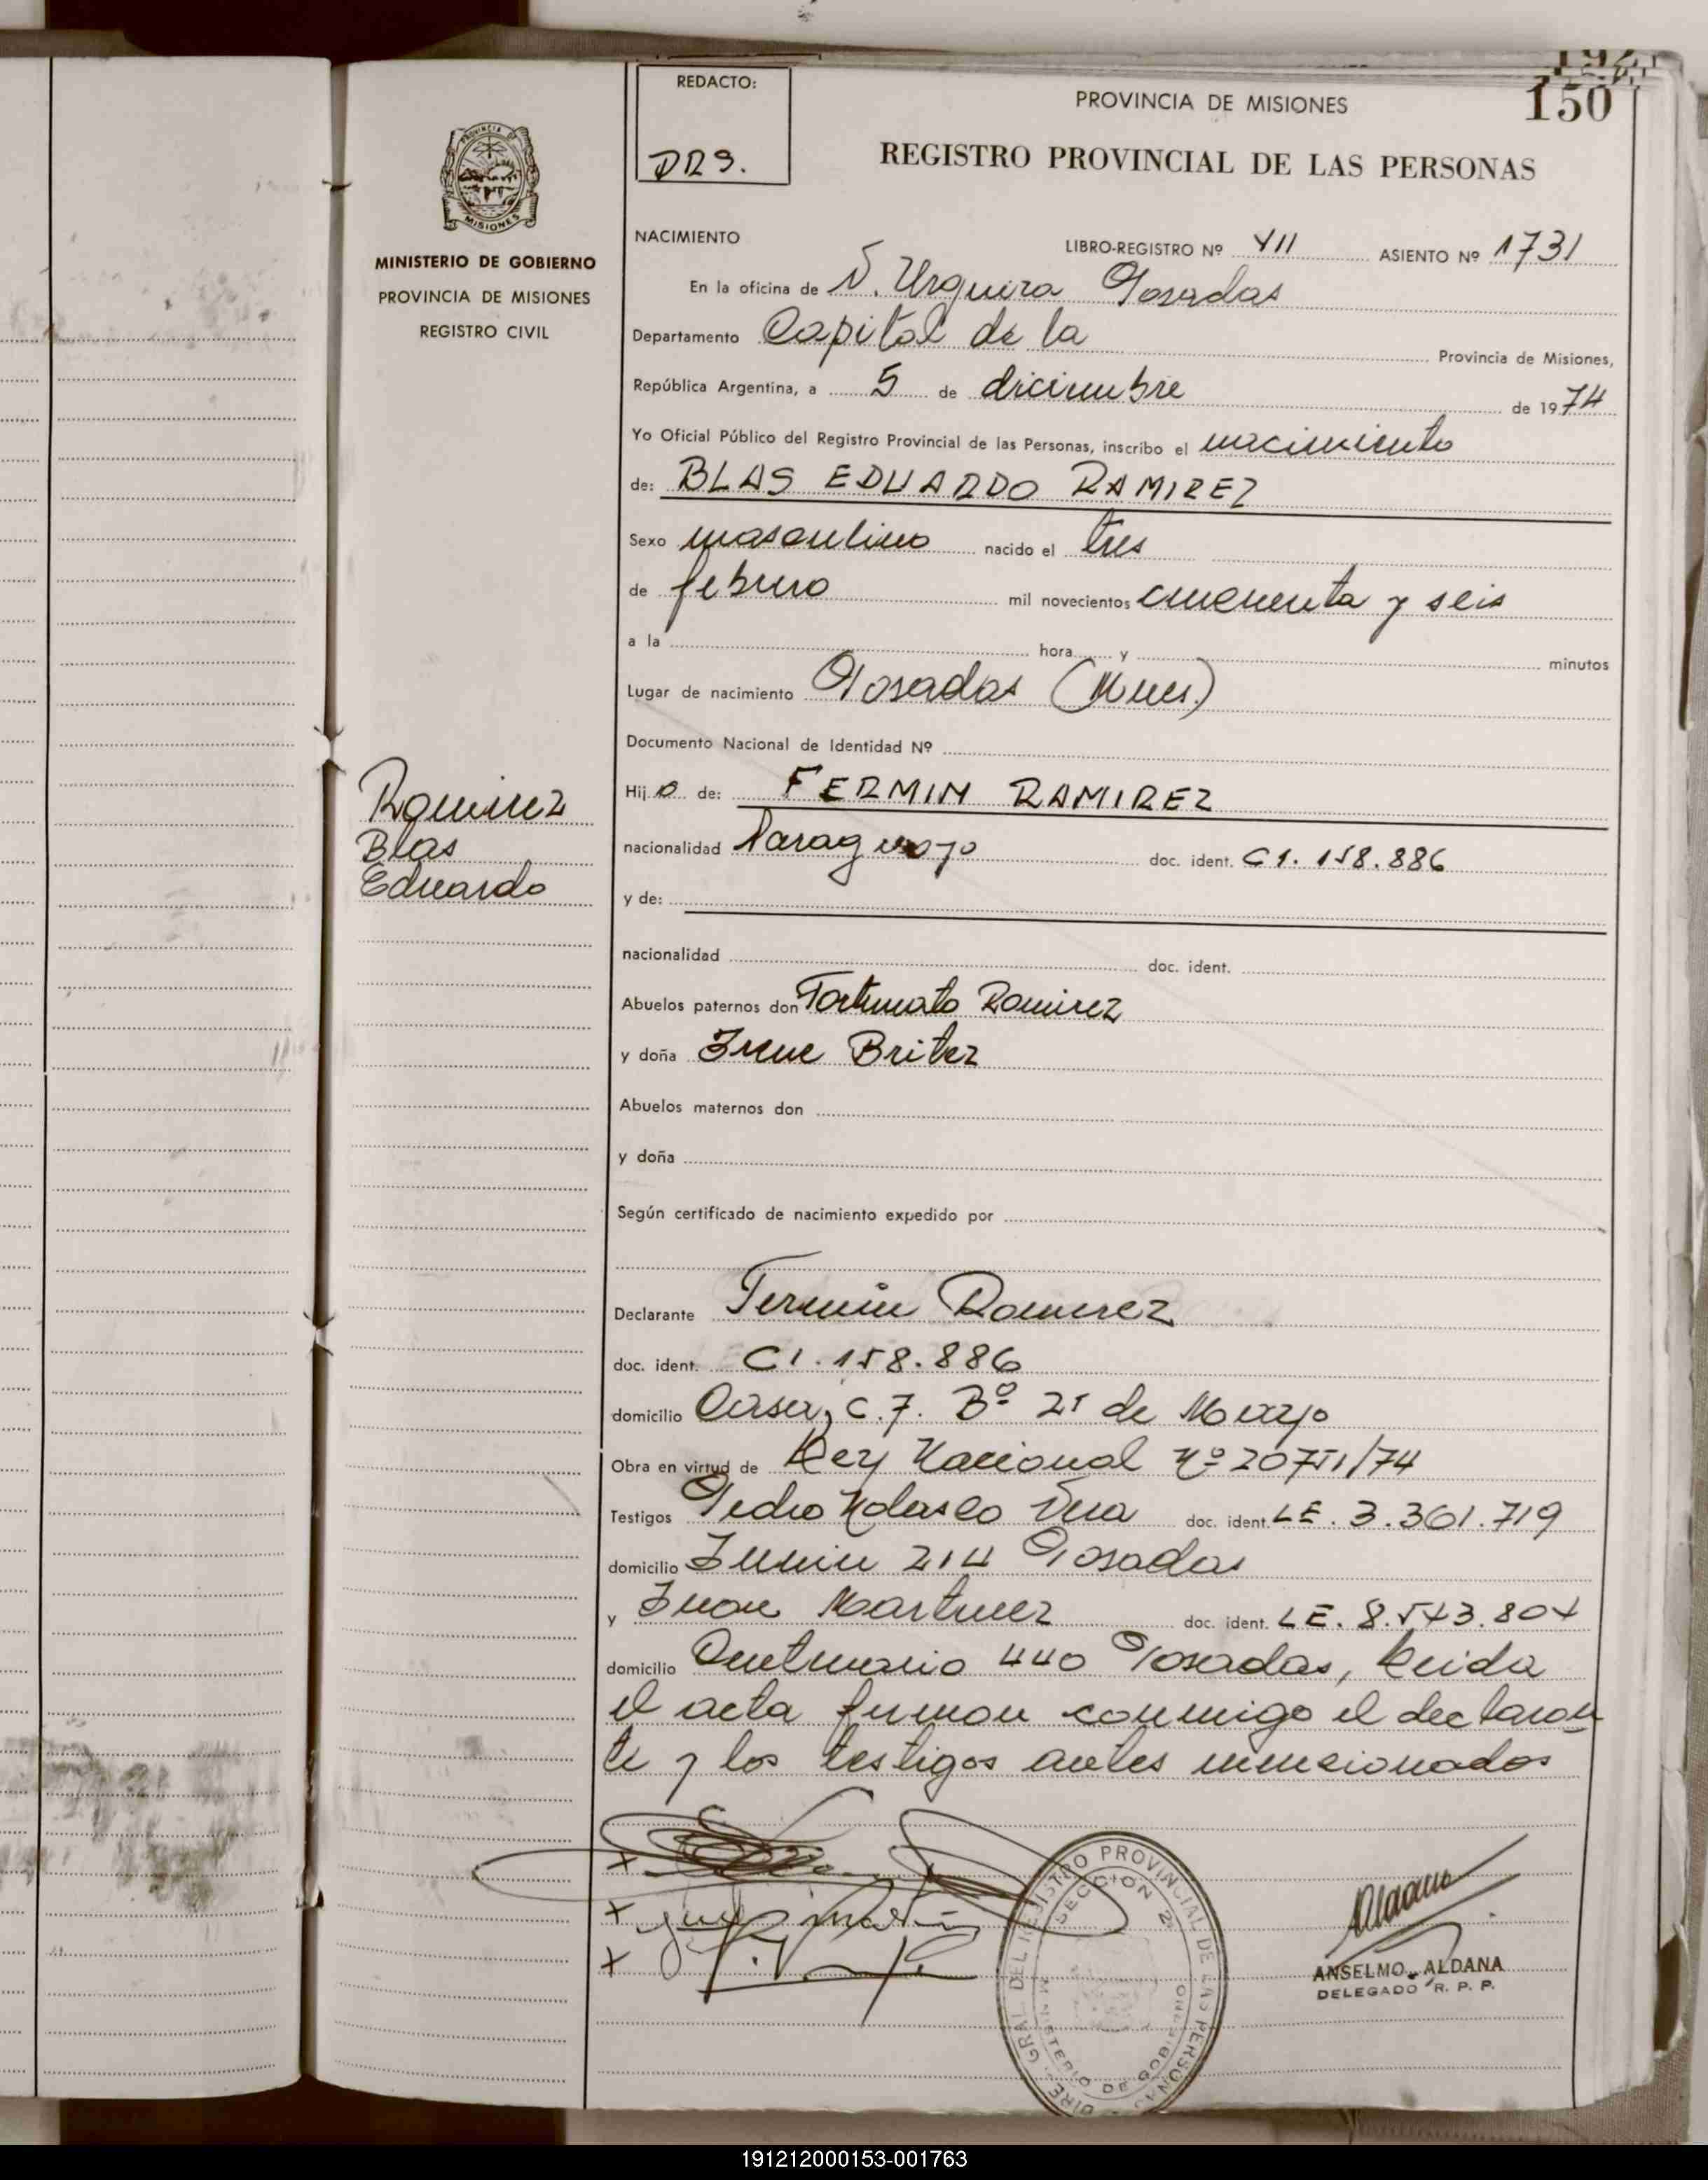 150
REDACTO:
DRS.
PROVINCIA DE MISIONES
REGISTRO PROVINCIAL DE LAS PERSONAS
PROVINCIA DE MISIONES
MINISTERIO DE GOBIERNO
PROVINCIA DE MISIONES
REGISTRO CIVIL
Ramirez
Blas
Eduardo
NACIMIENTO LIBRO-REGISTRO Nº VII ASIENTO Nº 1731
En la oficina de V. Urquiza Posadas
Departamento Capital de la Provincia de Misiones,
República Argentina, a 5 de diciembre de 1974
Yo Oficial Público del Registro Provincial de las Personas, inscribo el nacimiento
de: BLAS EDUARDO RAMIREZ
Sexo masculino nacido el tres
de febrero mil novecientos cincuenta y seis
a la hora y minutos
Lugar de nacimiento Posadas (Mnes.)
Documento Nacional de Identidad Nº
Hijo de: FERMIN RAMIREZ
nacionalidad Paraguayo doc. ident. CI. 158.886
y de:
nacionalidad doc. ident.
Abuelos paternos don Fortunato Ramirez
y doña Irene Britez
Abuelos maternos don
y doña
Según certificado de nacimiento expedido por
Declarante Fermin Ramirez
doc. ident. CI. 158.886
domicilio Casa, C.7. Bº 25 de Mayo
Obra en virtud de Ley Nacional Nº 20751/74
Testigos Pedro Nolasco Vera doc. ident. LE. 3.361.719
domicilio Junin 214 Posadas
y Juan Martinez doc. ident. LE. 8.543.804
domicilio Centenario 440 Posadas, Leida
el acta firman conmigo el declaran
te y los testigos antes mencionados
DIRE. GRAL DEL REJISTRO PROVINCIAL DE LAS PERSONAS
SECCION 2ª
MINISTERIO DE GOBIERNO
ANSELMO ALDANA
DELEGADO R. P. P.
191212000153-001763